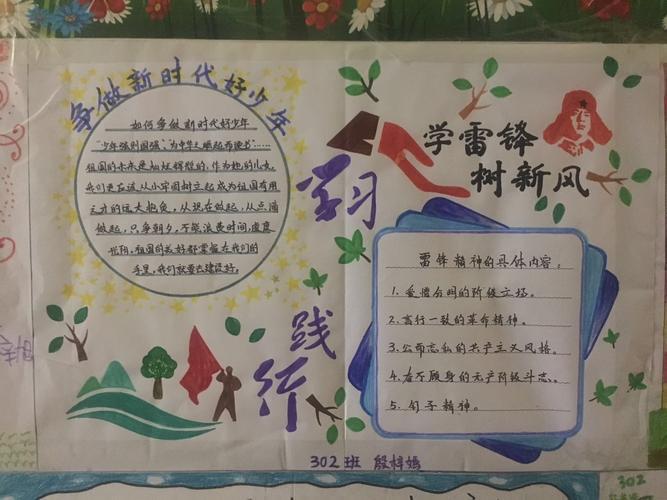 争做新时代好少年
如何争做新时代好少年
“少年强则国强，为中华之崛起而读书”……
祖国的未来是灿烂辉煌的，作为她的儿女，
我们更应该从小牢固树立起成为祖国有用
之才的远大抱负，从现在做起，从点滴
做起，只争朝夕，不能浪费时间，虚度
光阴，祖国的美好都掌握在我们的
手里，我们就要去建设好。
学习
践行
学雷锋
树新风
雷锋精神的具体内容。
1. 爱憎分明的阶级立场。
2. 言行一致的革命精神。
3. 公而忘私的共产主义风格。
4. 奋不顾身的无产阶级斗志。
5. 钉子精神。
302班 殷梓嫣
302